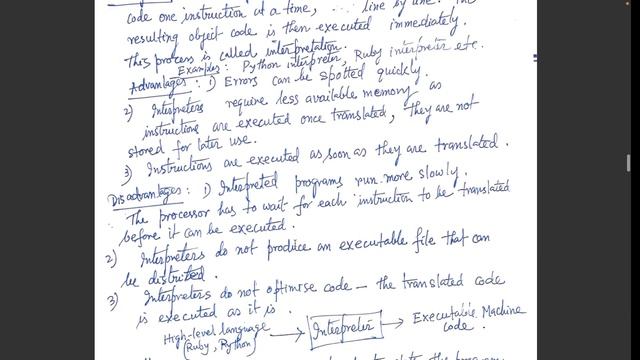 code one instruction at a time, ... line by line. The
resulting object code is then executed immediately.
This process is called interpretation.
Examples: Python interpreter, Ruby interpreter etc.
Advantages: 1) Errors can be spotted quickly.
2) Interpreters require less available memory as
instructions are executed once translated, they are not
stored for later use.
3) Instructions are executed as soon as they are translated.
Disadvantages: 1) Interpreted programs run more slowly.
The processor has to wait for each instruction to be translated
before it can be executed.
2) Interpreters do not produce an executable file that can
be distributed.
3) Interpreters do not optimise code – the translated code
is executed as it is.
High-level language (Ruby, Python) → Interpreter → Executable Machine code.